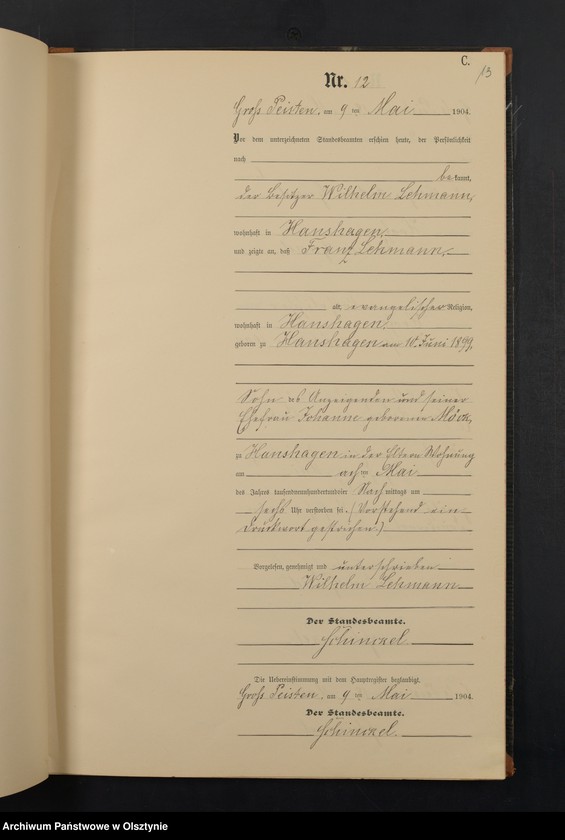 C.
13
Nr. 12
Groß Peisten, am 9 ten Mai 1904.
Vor dem unterzeichneten Standesbeamten erschien heute, der Persönlichkeit
nach
bekannt,
der Besitzer Wilhelm Lehmann,
wohnhaft in Hanshagen,
und zeigte an, daß Franz Lehmann,
alt, evangelischer Religion,
wohnhaft in Hanshagen,
geboren zu Hanshagen am 10. Juni 1899,
Sohn des Anzeigenden und seiner
Ehefrau Johanne geborenen Möck,
zu Hanshagen in der Eltern Wohnung
am achten Mai
des Jahres tausendneunhundertundvier Nachmittags um
sechs Uhr verstorben sei. (Vorstehend ein
Druckwort gestrichen.)
Vorgelesen, genehmigt und unterschrieben
Wilhelm Lehmann
Der Standesbeamte.
Schinckel.
Die Uebereinstimmung mit dem Hauptregister beglaubigt.
Groß Peisten, am 9 ten Mai 1904.
Der Standesbeamte.
Schinckel.
Archiwum Państwowe w Olsztynie